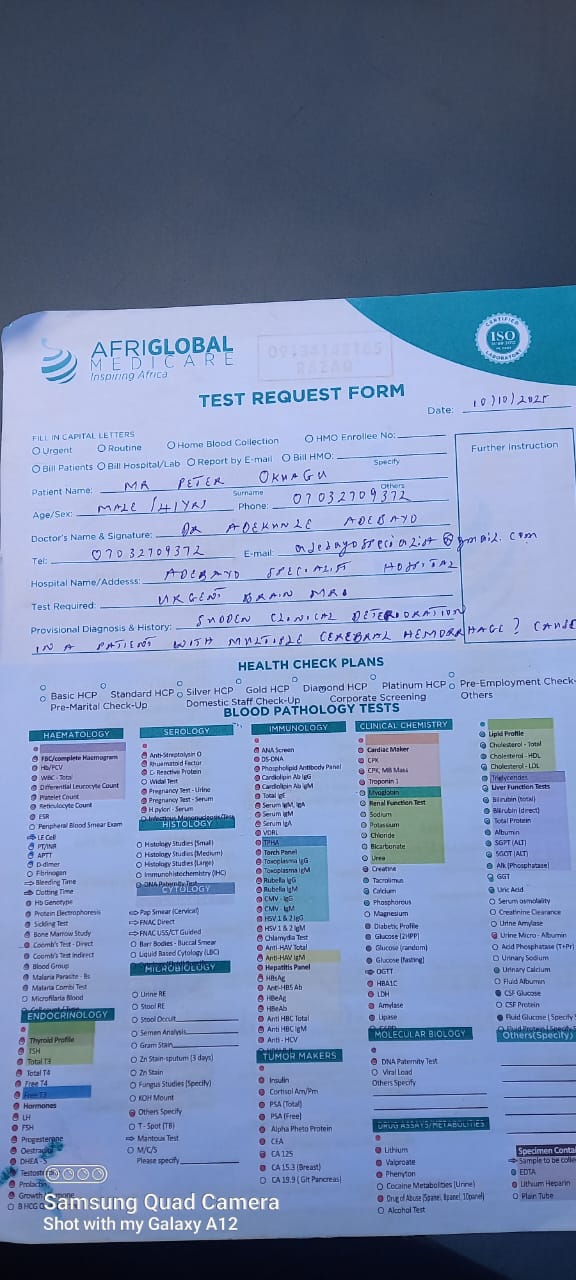 AFRIGLOBAL
MEDICARE
Inspiring Africa
CERTIFIED
ISO
LABORATORY
TEST REQUEST FORM
Date: 10/10/2025
FILL IN CAPITAL LETTERS
Urgent Routine Home Blood Collection HMO Enrollee No:
Bill Patients Bill Hospital/Lab Report by E-mail Bill HMO:
Specify
Further Instruction
Patient Name: MR PETER OKHAGU
Surname Others
Age/Sex: MALE /41YRS Phone: 07032709372
Doctor's Name & Signature: DR ADEKUNLE ADEBAYO
Tel: 07032709372 E-mail: adebayospecialist@gmail.com
Hospital Name/Addesss: ADEBAYO SPECIALIST HOSPITAL
Test Required: URGENT BRAIN MRI
Provisional Diagnosis & History: SUDDEN CLINICAL DETERIORATION
IN A PATIENT WITH MULTIPLE CEREBRAL HEMORRHAGE ? CAUSE
HEALTH CHECK PLANS
Basic HCP Standard HCP Silver HCP Gold HCP Diamond HCP Platinum HCP Pre-Employment Check-
Pre-Marital Check-Up Domestic Staff Check-Up Corporate Screening Others
BLOOD PATHOLOGY TESTS
HAEMATOLOGY
FBC/complete Haemogram
Hb/PCV
WBC - Total
Differential Leucocyte Count
Platelet Count
Reticulocyte Count
ESR
Peripheral Blood Smear Exam
LE Cell
PT/INR
APTT
D-dimer
Fibrinogen
Bleeding Time
Clotting Time
Hb Genotype
Protein Electrophoresis
Sickling Test
Bone Marrow Study
Coomb's Test - Direct
Coomb's Test Indirect
Blood Group
Malaria Parasite - Bs
Malaria Combi Test
Microfilaria Blood
ENDOCRINOLOGY
Thyroid Profile
TSH
Total T3
Total T4
Free T4
Free T3
Hormones
LH
FSH
Progesterone
Oestradiol
DHEA - S
Testosterone
Prolactin
Growth Hormone
B HCG
SEROLOGY
Anti-Streptolysin O
Rhuematoid Factor
C- Reactive Protein
Widal Test
Pregnancy Test - Urine
Pregnancy Test - Serum
H.pylori - Serum
Infectious Mononucleosis
HISTOLOGY
Histology Studies (Small)
Histology Studies (Medium)
Histology Studies (Large)
Immunohistochemistry (IHC)
DNA Paternity Test
CYTOLOGY
Pap Smear (Cervical)
FNAC Direct
FNAC USS/CT Guided
Barr Bodies - Buccal Smear
Liquid Based Cytology (LBC)
MICROBIOLOGY
Urine RE
Stool RE
Stool Occult
Semen Analysis
Gram Stain
Zn Stain-sputum (3 days)
Zn Stain
Fungus Studies (Specify)
KOH Mount
Others Specify
T - Spot (TB)
Mantoux Test
M/C/S
Please specify
IMMUNOLOGY
ANA Screen
DS-DNA
Phospholipid Antibody Panel
Cardiolipin Ab IgG
Cardiolipin Ab IgM
Total IgE
Serum IgM, IgA
Serum IgM
Serum IgA
VDRL
TPHA
Torch Panel
Toxoplasma IgG
Toxoplasma IgM
Rubella IgG
Rubella IgM
CMV - IgG
CMV - IgM
HSV 1 & 2 IgG
HSV 1 & 2 IgM
Chlamydia Test
Anti-HAV Total
Anti-HAV IgM
Hepatitis Panel
HBsAg
Anti-HBS Ab
HBeAg
HBeAb
Anti HBC Total
Anti HBC IgM
Anti - HCV
TUMOR MAKERS
Insulin
Cortisol Am/Pm
PSA (Total)
PSA (Free)
Alpha Pheto Protein
CEA
CA 125
CA 15.3 (Breast)
CA 19.9 ( Git Pancreas)
CLINICAL CHEMISTRY
Cardiac Maker
CPK
CPK, MB Mass
Troponin 1
Myoglobin
Renal Function Test
Sodium
Potassium
Chloride
Bicarbonate
Urea
Creatine
Tacrolimus
Calcium
Phosphorous
Magnesium
Diabetic Profile
Glucose (2HPP)
Glucose (random)
Glucose (fasting)
OGTT
HBA1C
LDH
Amylase
Lipase
MOLECULAR BIOLOGY
DNA Paternity Test
Viral Load
Others Specify
DRUG ASSAYS/METABOLITIES
Lithium
Valproate
Phenyton
Cocaine Metabolities (Urine)
Drug of Abuse (5panel, 8panel, 10panel)
Alcohol Test
Lipid Profile
Cholesterol - Total
Cholesterol - HDL
Cholesterol - LDL
Triglycerides
Liver Function Tests
Bilirubin (total)
Bilirubin (direct)
Total Protein
Albumin
SGPT (ALT)
SGOT (ALT)
Alk (Phosphatase)
GGT
Uric Acid
Serum osmolality
Creatinine Clearance
Urine Amylase
Urine Micro - Albumin
Acid Phosphatase (T+Pr)
Urinary Sodium
Urinary Calcium
Fluid Albumin
CSF Glucose
CSF Protein
Fluid Glucose ( Specify
Fluid Protein (Specify
Others(Specify)
Specimen
Sample to be
EDTA
Lithium Heparin
Plain Tube
Samsung Quad Camera
Shot with my Galaxy A12